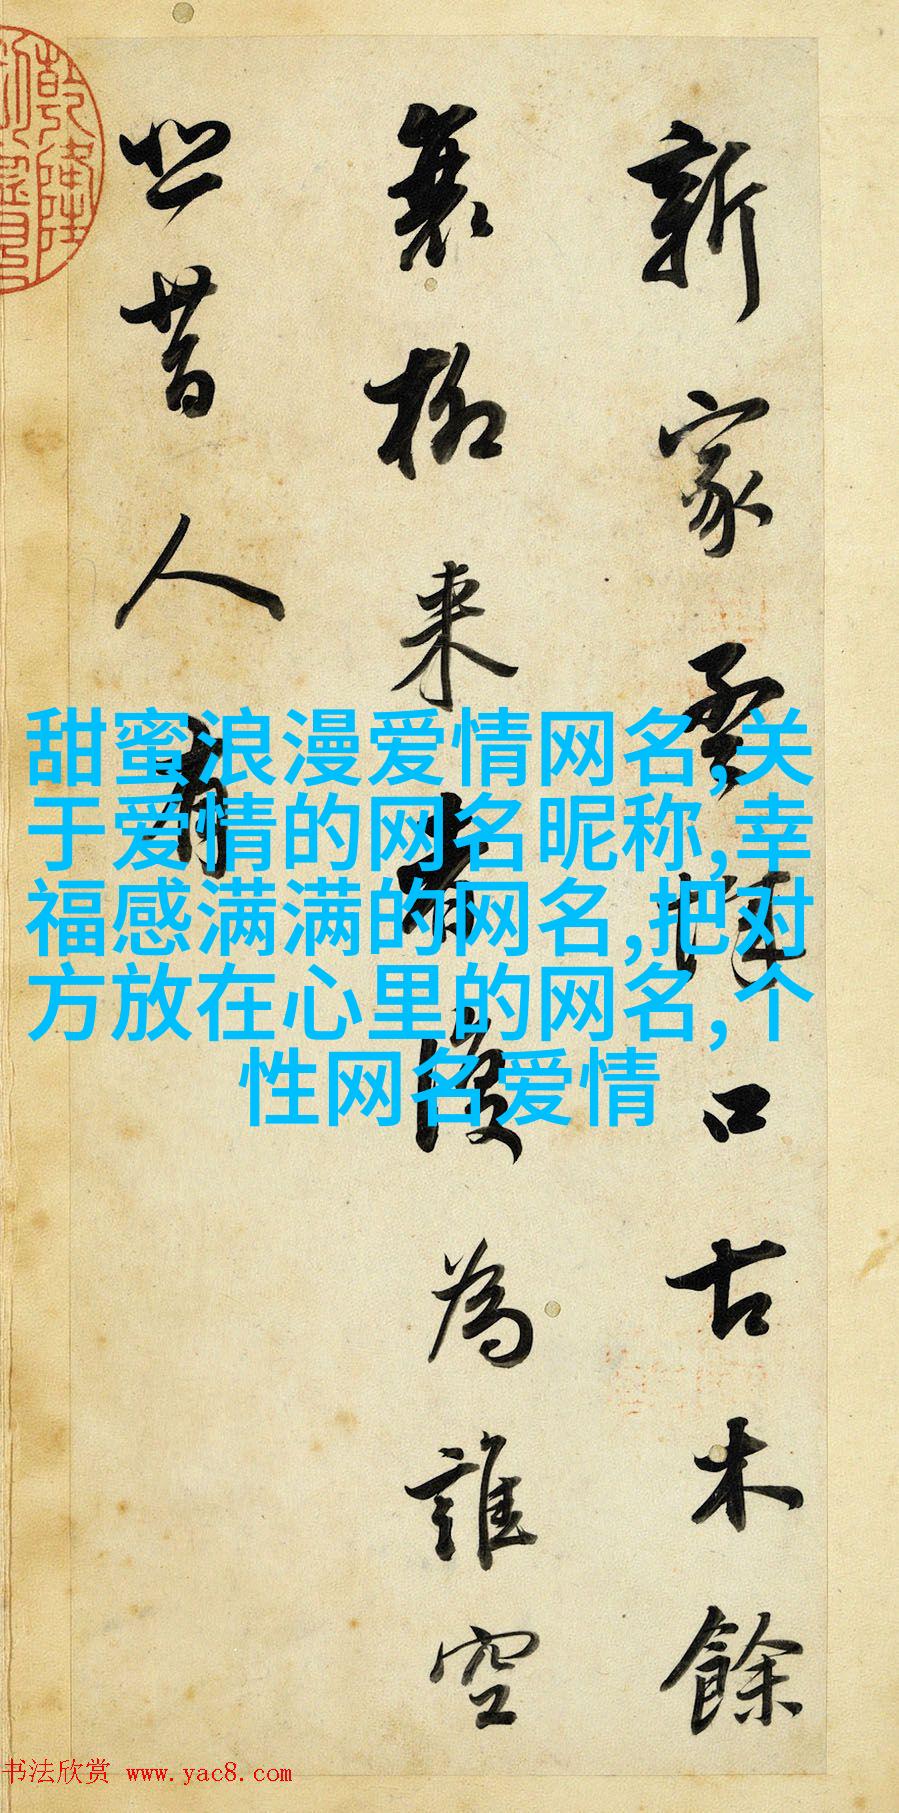 新家孟城口古木餘
衰柳来者復為誰空
悲昔人有
甜蜜浪漫爱情网名,关
于爱情的网名昵称,幸
福感满满的网名,把对
方放在心里的网名,个
性网名爱情
书法欣赏 www.yac8.com